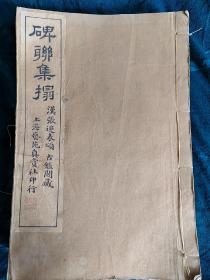 碑聯集搨
漢張遷表頌 古鑑閣藏
上海藝苑真賞社印行